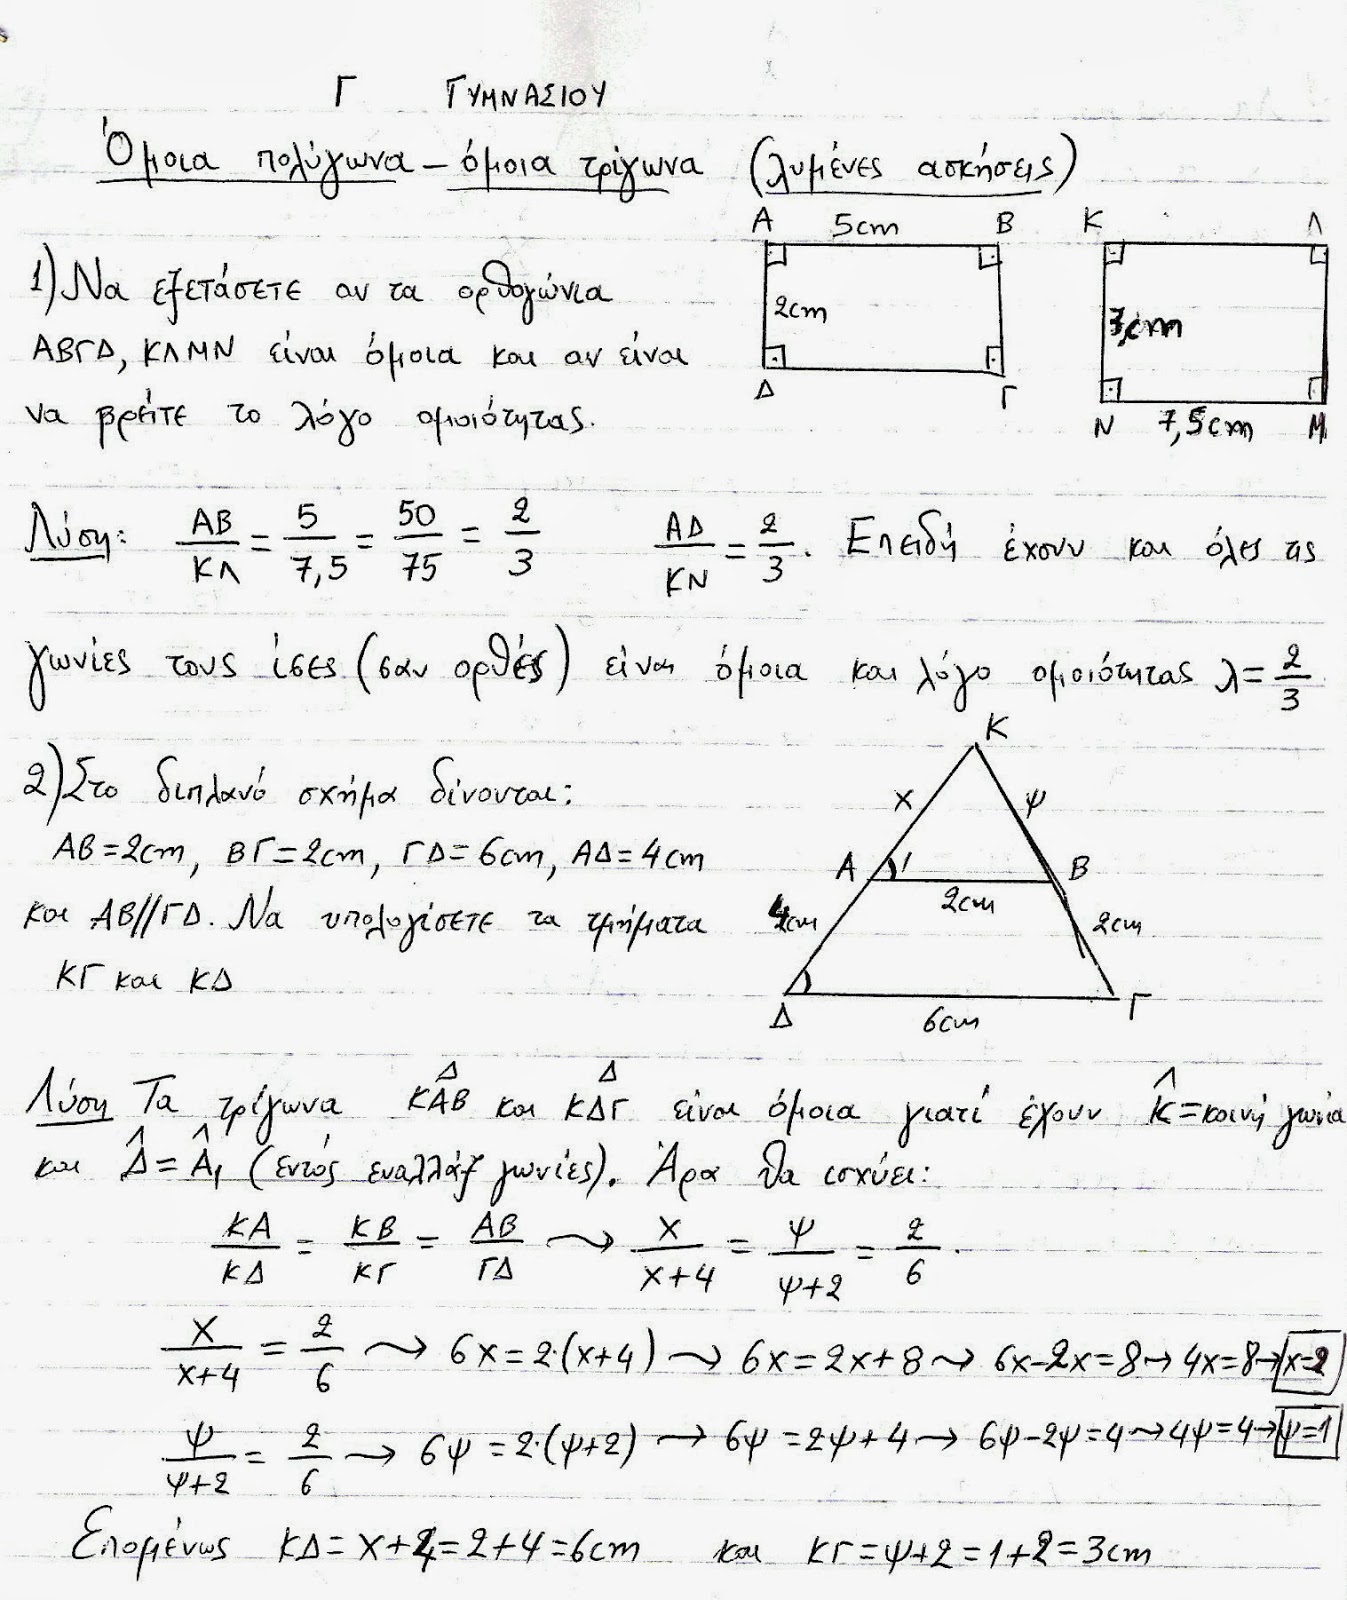 Γ ΓΥΜΝΑΣΙΟΥ
Όμοια πολύγωνα – όμοια τρίγωνα (λυμένες ασκήσεις)
A 5cm B
K Λ
1) Να εξετάσετε αν τα ορθογώνια
2cm
3cm
ΑΒΓΔ, ΚΛΜΝ είναι όμοια και αν είναι
Δ Γ
να βρείτε το λόγο ομοιότητας.
N 7,5cm M
Λύση: ΑΒ/ΚΛ = 5/7,5 = 50/75 = 2/3 ΑΔ/ΚΝ = 2/3. Επειδή έχουν και όλες τις
γωνίες τους ίσες (σαν ορθές) είναι όμοια και λόγο ομοιότητας λ = 2/3
K
2) Στο διπλανό σχήμα δίνονται:
x ψ
ΑΒ=2cm, ΒΓ=2cm, ΓΔ=6cm, ΑΔ=4cm
A 1 B
2cm
και ΑΒ//ΓΔ. Να υπολογίσετε τα τμήματα
4cm 2cm
ΚΓ και ΚΔ
Δ 6cm Γ
Λύση Τα τρίγωνα ΚΑΒ και ΚΔΓ είναι όμοια γιατί έχουν K̂ = κοινή γωνία
και Δ̂ = Â₁ (εντός εναλλάξ γωνίες). Άρα θα ισχύει:
ΚΑ/ΚΔ = ΚΒ/ΚΓ = ΑΒ/ΓΔ ⤳ x/x+4 = ψ/ψ+2 = 2/6.
x/x+4 = 2/6 ⤳ 6x=2·(x+4) ⤳ 6x=2x+8 ⤳ 6x-2x=8 → 4x=8 → x=2
ψ/ψ+2 = 2/6 ⤳ 6ψ=2·(ψ+2) ⤳ 6ψ=2ψ+4 ⤳ 6ψ-2ψ=4 ⤳ 4ψ=4 → ψ=1
Επομένως ΚΔ=x+4=2+4=6cm και ΚΓ=ψ+2=1+2=3cm